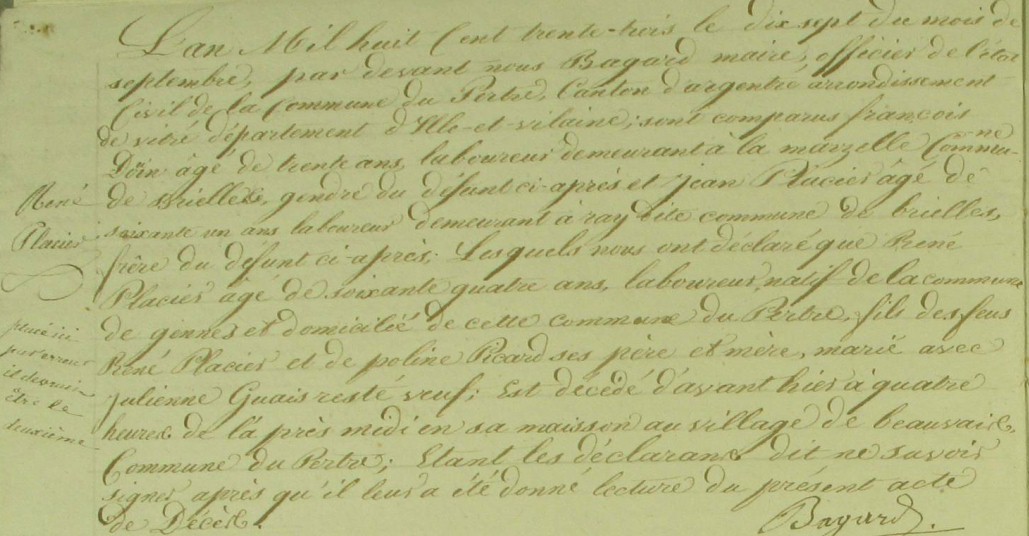 L'an Mil huit Cent trente-trois le dix sept du mois de
septembre, par devant nous Bagard maire, officier de l'état
Civil de la Commune du Pertre, Canton d'argentré arrondissement
de vitré département d'Ille-et-vilaine; sont comparus françois
Doin âgé de trente ans, laboureur demeurant à la marzelle Commu-
ne
de Brielles, gendre du défunt ci-après et jean Placier âgé de
soixante un ans laboureur demeurant à ray dite commune de brielles,
frère du défunt ci-après; Lesquels nous ont déclaré que René
Placier âgé de soixante quatre ans, laboureur, natif de la commune
de gennes et domicilié de cette commune du Pertre, fils des feus
René Placier et de poline Picard ses père et mère, marié avec
julienne Guais resté veuf; Est décédé d'avant hier à quatre
heures de la près midi en sa maisson au village de beauvais,
Commune du Pertre; Etant les déclarans dit ne savoir
signer après qu'il leur a été donné lecture du présent acte
de Décès.
Bagard
René
Placier
placé ici
par erreur
il devrait
être le
deuxième